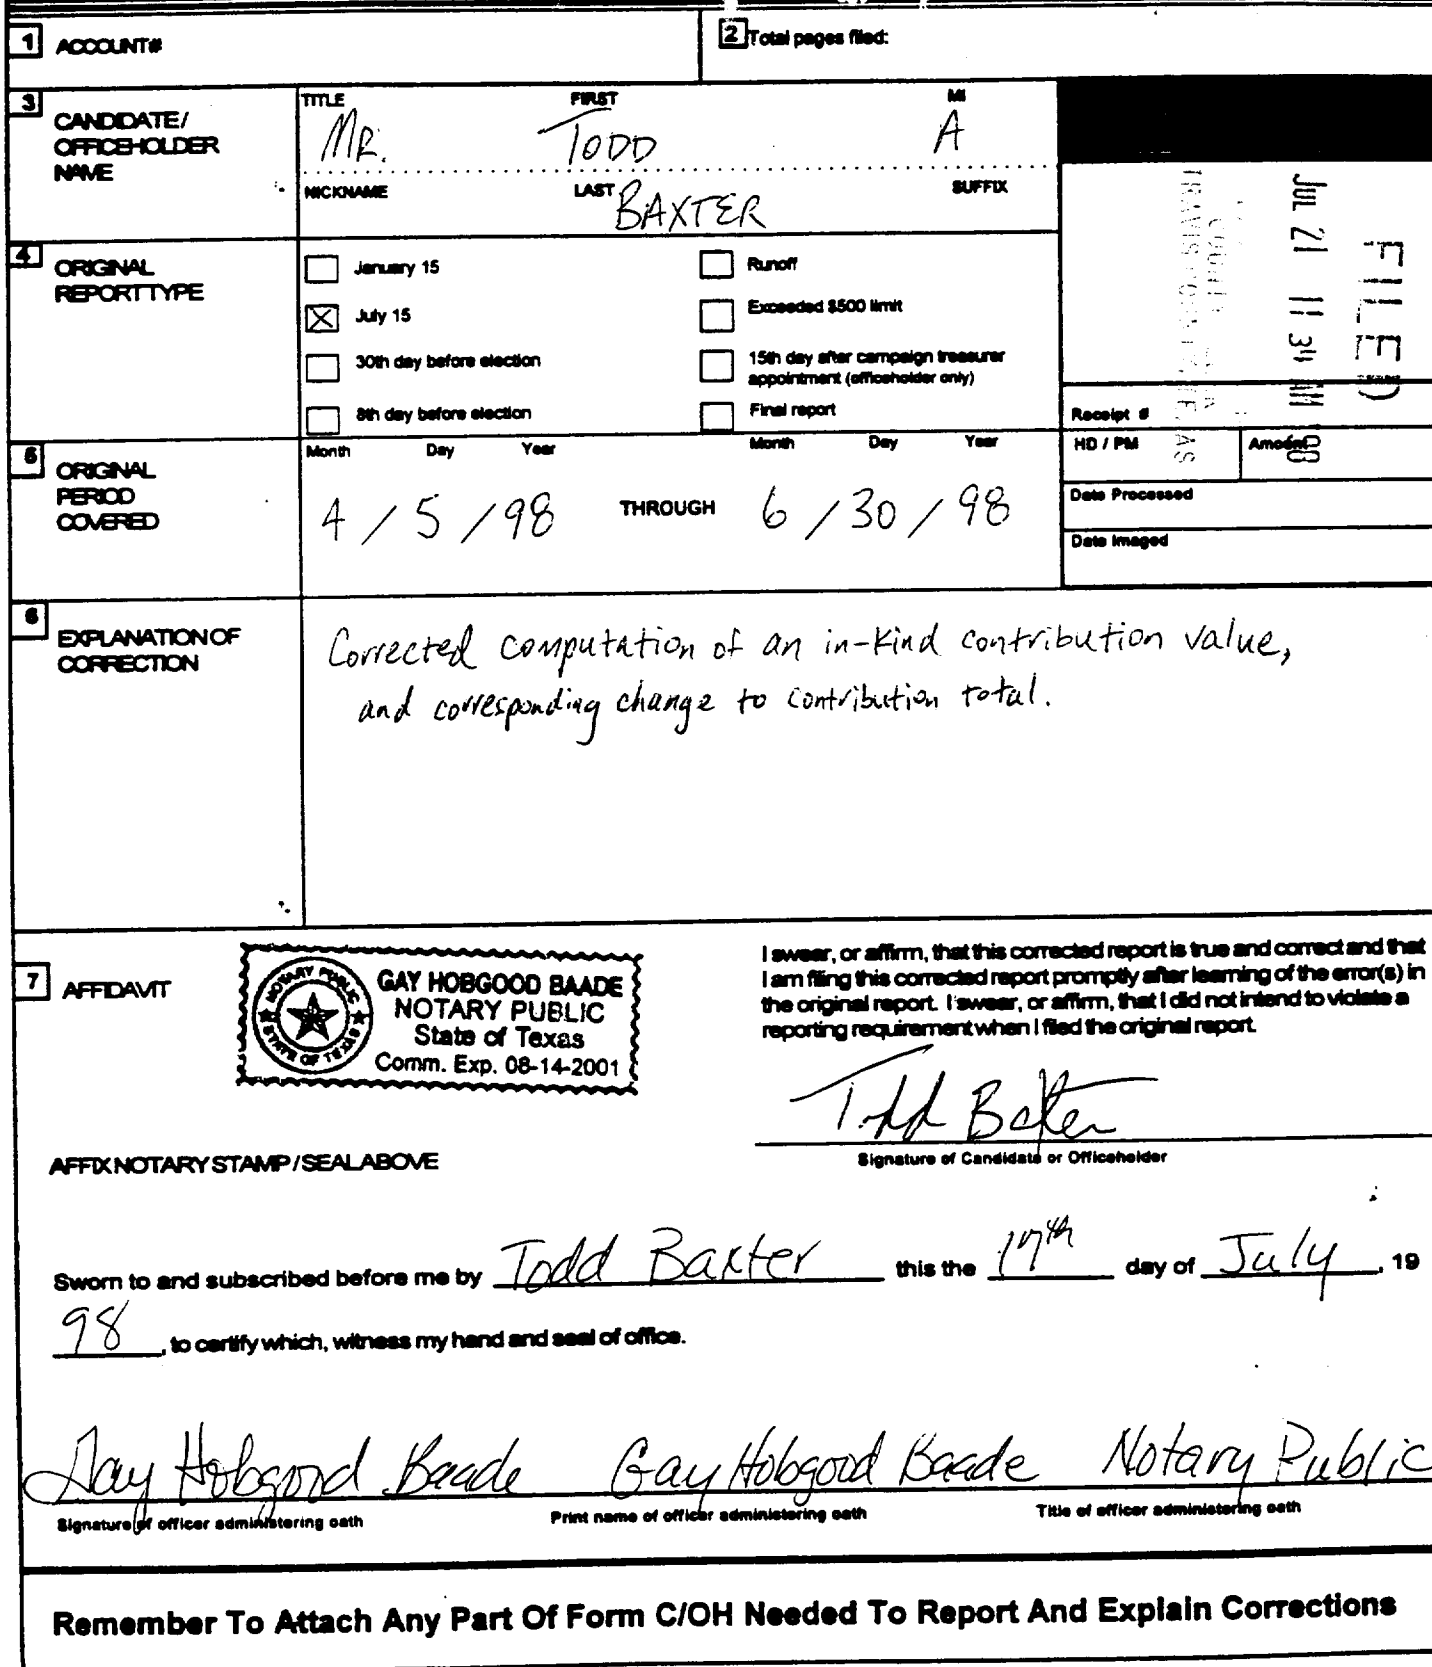 1 ACCOUNT#
2 Total pages filed:
3 CANDIDATE/
OFFICEHOLDER
NAME
TITLE FIRST MI
MR. TODD A
NICKNAME LAST SUFFIX
BAXTER
FILED
JUL 21 11 34 AM '98
4 ORIGINAL
REPORT TYPE
January 15
Runoff
☒ July 15
Exceeded $500 limit
30th day before election
15th day after campaign treasurer
appointment (officeholder only)
8th day before election
Final report
Receipt #
HD / PM Amount
Date Processed
Date Imaged
5 ORIGINAL
PERIOD
COVERED
Month Day Year Month Day Year
4 / 5 / 98 THROUGH 6 / 30 / 98
6 EXPLANATION OF
CORRECTION
Corrected computation of an in-kind contribution value,
and corresponding change to contribution total.
7 AFFIDAVIT
NOTARY PUBLIC
STATE OF TEXAS
GAY HOBGOOD BAADE
NOTARY PUBLIC
State of Texas
Comm. Exp. 08-14-2001
I swear, or affirm, that this corrected report is true and correct and that
I am filing this corrected report promptly after learning of the error(s) in
the original report. I swear, or affirm, that I did not intend to violate a
reporting requirement when I filed the original report.
Todd Baxter
Signature of Candidate or Officeholder
AFFIX NOTARY STAMP / SEAL ABOVE
Sworn to and subscribed before me by Todd Baxter this the 17th day of July, 19
98, to certify which, witness my hand and seal of office.
Gay Hobgood Baade Gay Hobgood Baade Notary Public
Signature of officer administering oath Print name of officer administering oath Title of officer administering oath
Remember To Attach Any Part Of Form C/OH Needed To Report And Explain Corrections